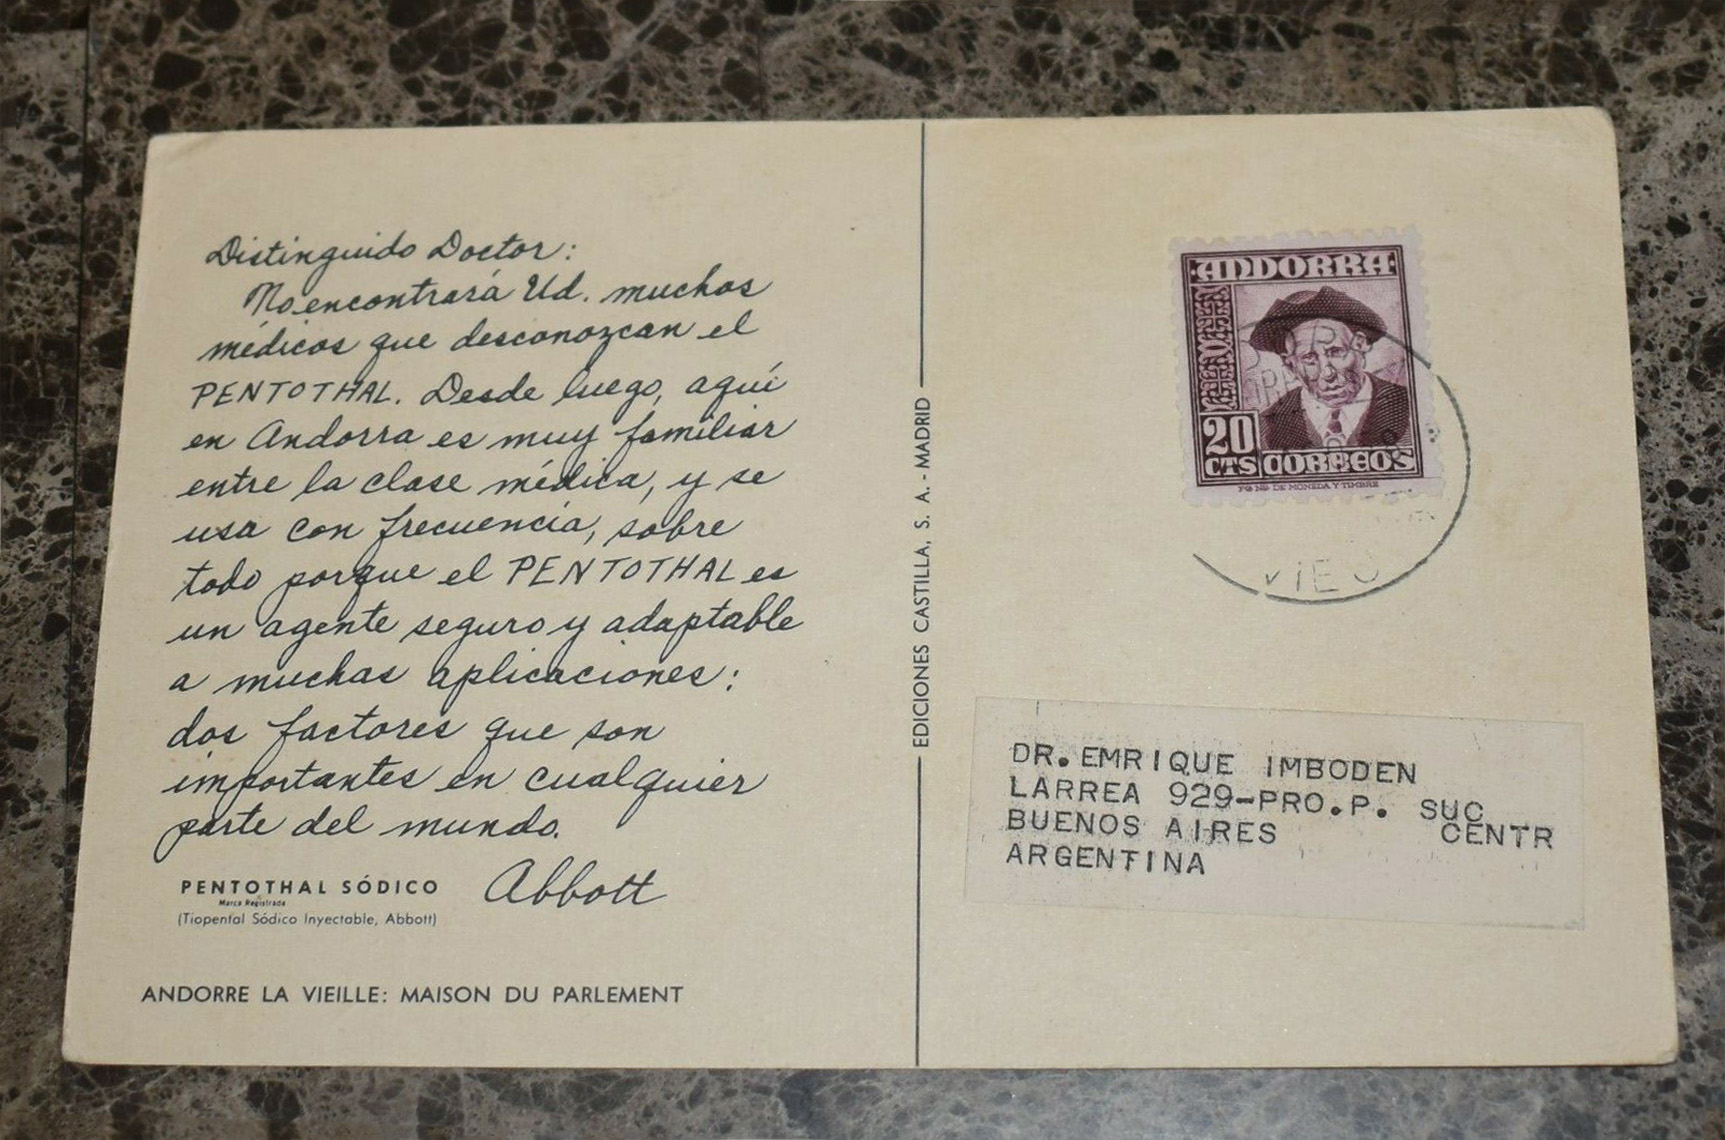 Distinguido Doctor:
No encontrará Ud. muchos
médicos que desconozcan el
PENTOTHAL. Desde luego, aquí
en Andorra es muy familiar
entre la clase médica, y se
usa con frecuencia, sobre
todo porque el PENTOTHAL es
un agente seguro y adaptable
a muchas aplicaciones:
dos factores que son
importantes en cualquier
parte del mundo.
Abbott
PENTOTHAL SÓDICO
Marca Registrada
(Tiopental Sódico Inyectable, Abbott)
ANDORRE LA VIEILLE: MAISON DU PARLEMENT
EDICIONES CASTILLA, S. A. - MADRID
ANDORRA
20
CTS CORREOS
DE MONEDA Y TIMBRE
DR. EMRIQUE IMBODEN
LARREA 929-PRO.P. SUC
BUENOS AIRES CENTR
ARGENTINA